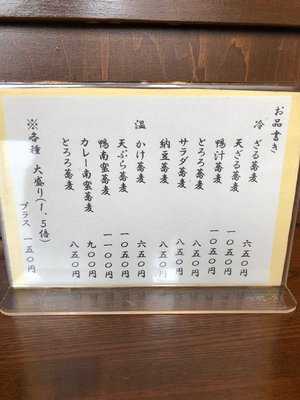 お品書き
冷 ざる蕎麦 六五〇円
天ざる蕎麦 一〇五〇円
鴨汁蕎麦 一〇五〇円
とろろ蕎麦 八五〇円
サラダ蕎麦 八五〇円
納豆蕎麦 八五〇円
温 かけ蕎麦 六五〇円
天ぷら蕎麦 一〇五〇円
鴨南蛮蕎麦 一一〇〇円
カレー南蛮蕎麦 九〇〇円
とろろ蕎麦 八五〇円
※各種 大盛り(1.5倍)
プラス 一五〇円